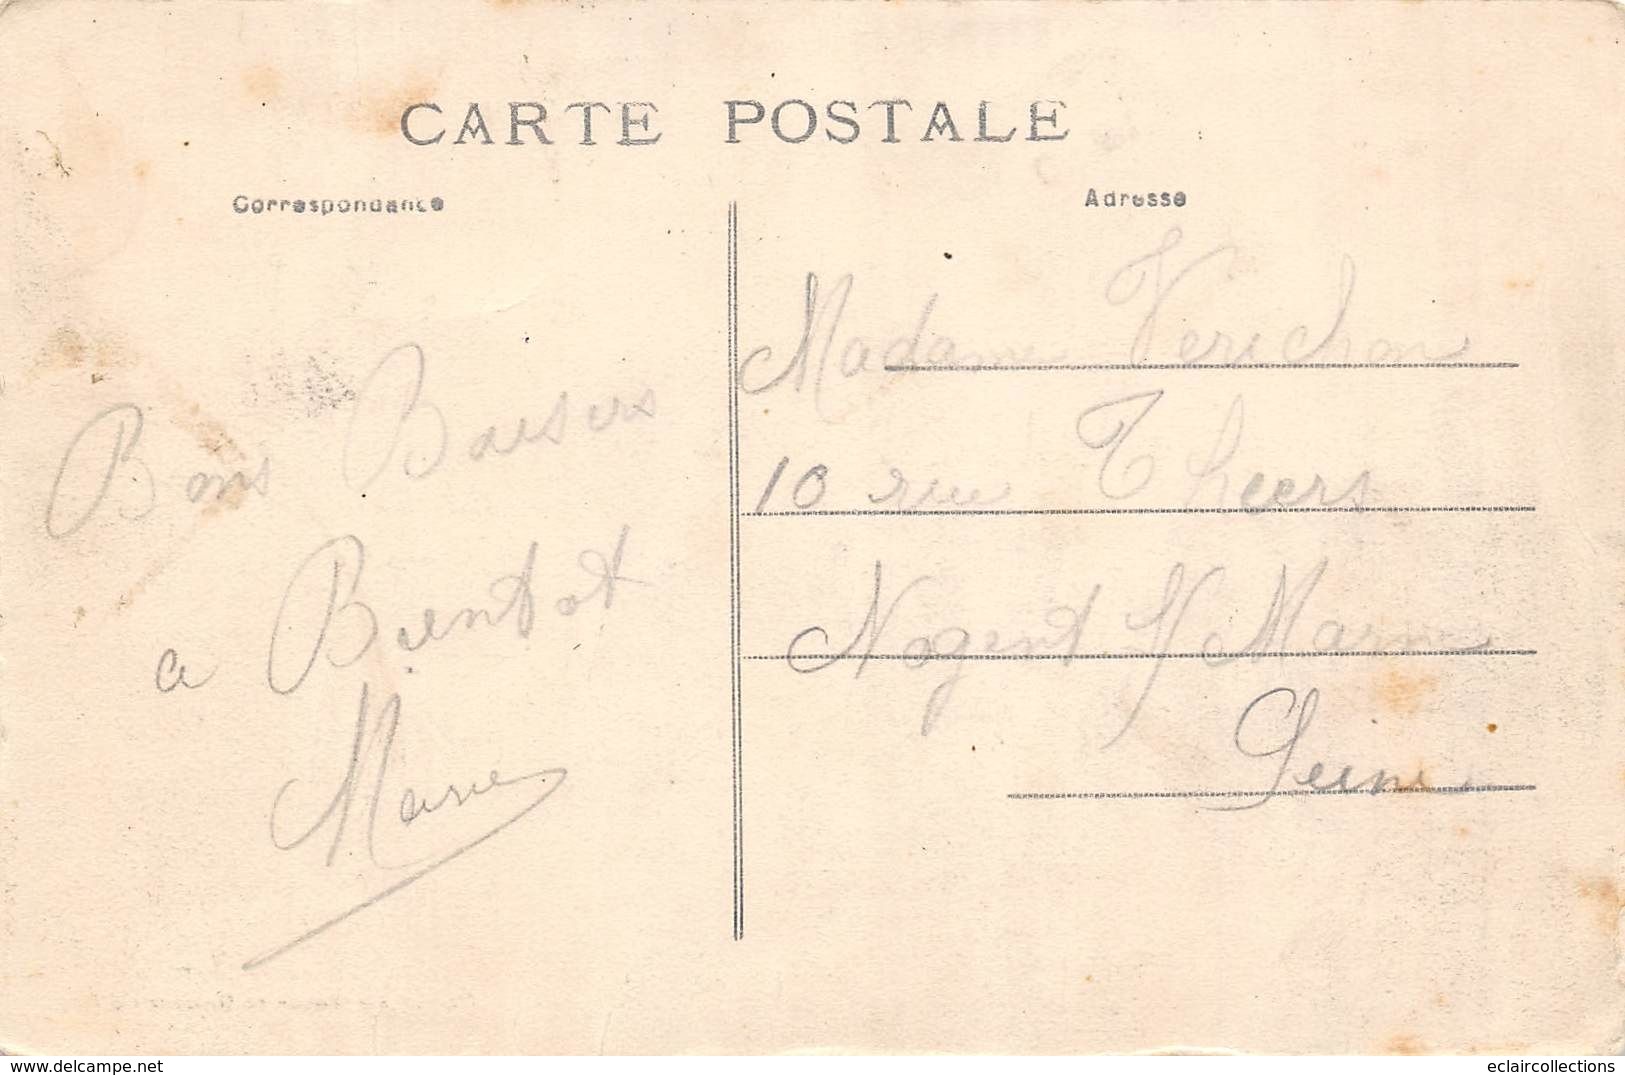 CARTE POSTALE
Correspondance
Adresse
Bons Baisers
a Bientot
Marie
Madame Verichon
10 rue Thiers
Nogent s/ Marne
Seine
www.delcampe.net
eclaircollections